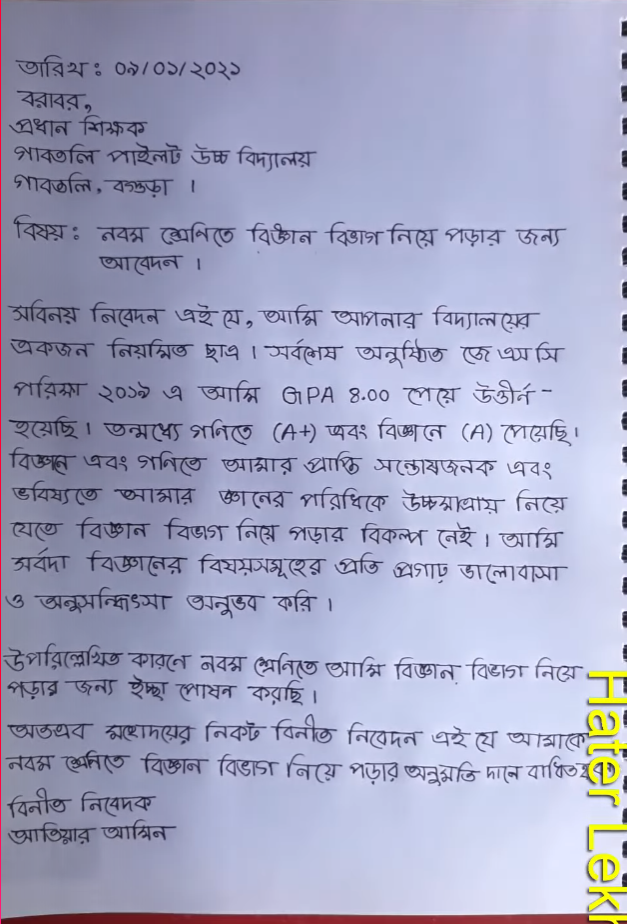 তারিখ : ০৯/০১/২০২১
বরাবর,
প্রধান শিক্ষক
গাবতলি পাইলট উচ্চ বিদ্যালয়
গাবতলি, বগুড়া ।
বিষয় : নবম শ্রেনিতে বিজ্ঞান বিভাগ নিয়ে পড়ার জন্য
আবেদন ।
সবিনয় নিবেদন এই যে, আমি আপনার বিদ্যালয়ের
একজন নিয়মিত ছাত্র । সর্বশেষ অনুষ্ঠিত জে এস সি
পরিক্ষা ২০১৯ এ আমি GPA 8.00 পেয়ে উত্তীর্ন -
হয়েছি । তন্মধ্যে গনিতে (A+) এবং বিজ্ঞানে (A) পেয়েছি।
বিজ্ঞান এবং গনিতে আমার প্রাপ্তি সন্তোষজনক এবং
ভবিষ্যতে আমার জ্ঞানের পরিধিকে উচ্চমাত্রায় নিয়ে
যেতে বিজ্ঞান বিভাগ নিয়ে পড়ার বিকল্প নেই । আমি
সর্বদা বিজ্ঞানের বিষয়সমূহের প্রতি প্রগাঢ় ভালোবাসা
ও অনুসন্ধিৎসা অনুভব করি ।
উপরিল্লেখিত কারনে নবম শ্রেনিতে আমি বিজ্ঞান বিভাগ নিয়ে
পড়ার জন্য ইচ্ছা পোষন করছি ।
অতএব মহোদয়ের নিকট বিনীত নিবেদন এই যে আমাকে
নবম শ্রেনিতে বিজ্ঞান বিভাগ নিয়ে পড়ার অনুমতি দানে বাধিত
বিনীত নিবেদক
আতিয়ার আমিন
Hater Lekh